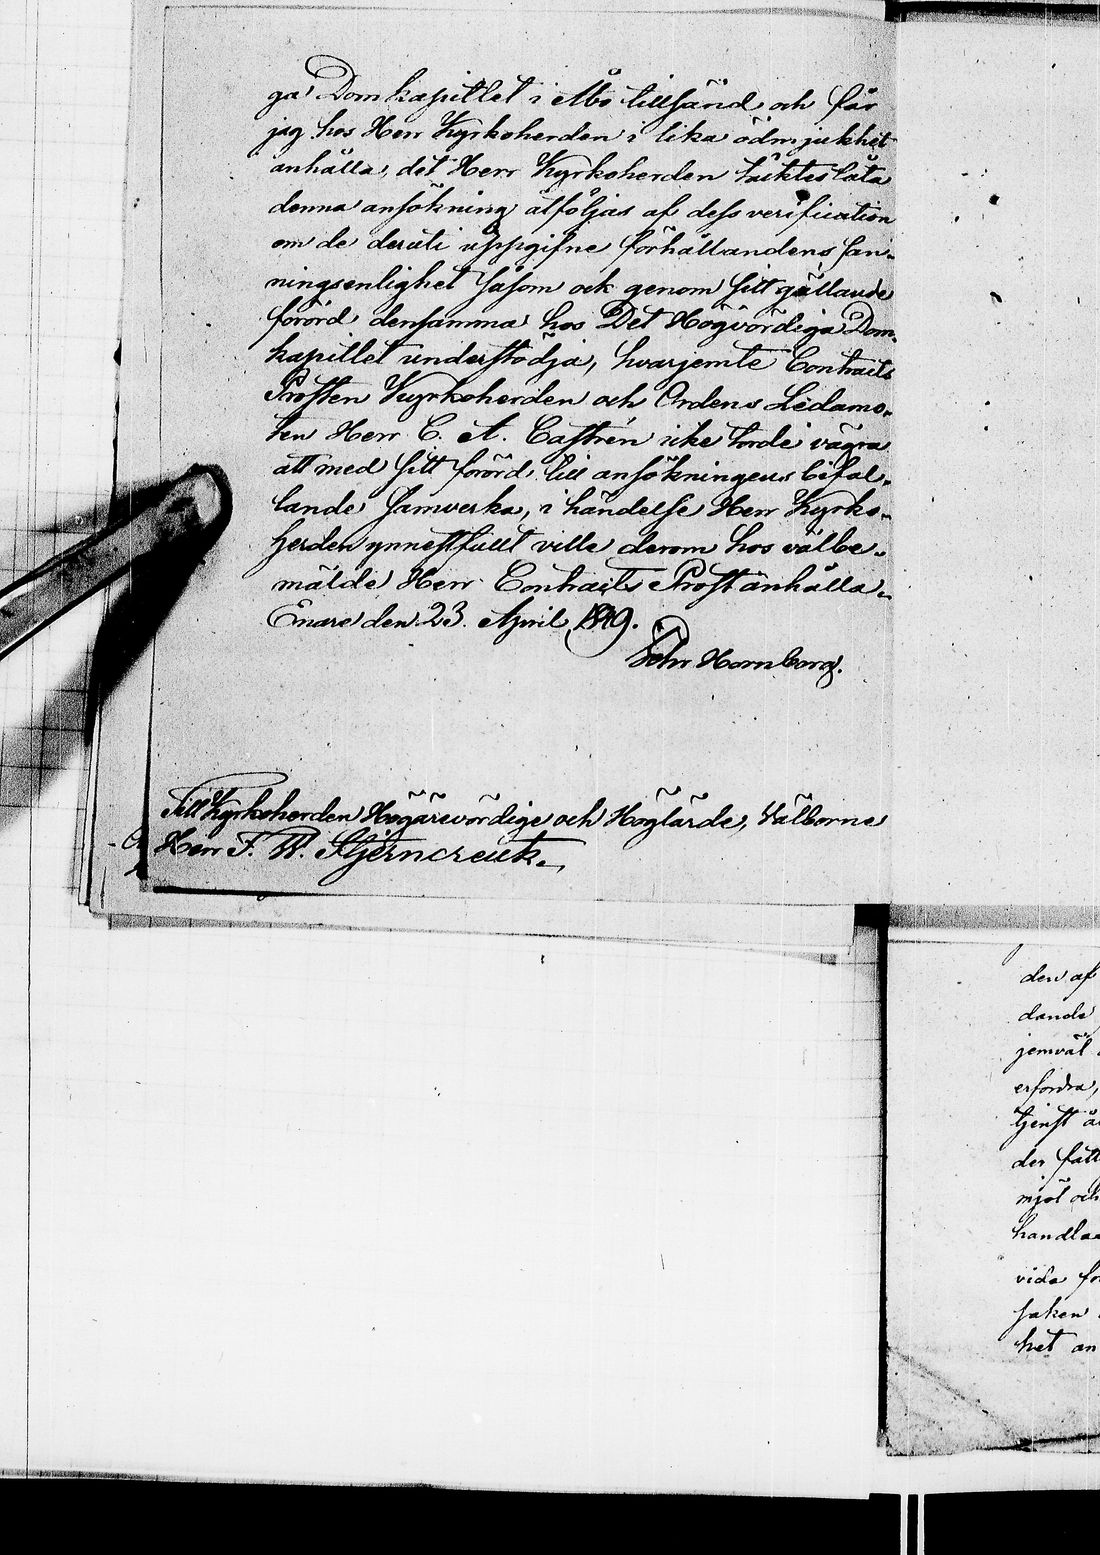 ga Domkapitlet i Åbo tillsänd och får
jag hos Herr Kyrkoherden i lika ödmjukhet
anhålla, det Herr Kyrkoherden täcktes låta
denna ansökning åtföljas af dess verification
om de deruti uppgifne förhållandens san-
ningsenlighet såsom ock genom sitt gällande
förord densamma hos Det Högvördiga Dom-
kapitlet understödja, hvarjemte Contracts
Prosten Kyrkoherden och Ordens Ledamo-
ten Herr C. A. Castrén icke torde vägra
att med sitt förord till ansökningens bifal-
lande samverka, i händelse Herr Kyrko-
herden ynnestfullt ville derom hos välbe-
mälde Herr Contracts Prost anhålla.
Enare den 23. April
Pehr Hornborg.
Till Kyrkoherden Högärevördige och Höglärde, Välborne
Herr F. W. Stjerncreutz.
den af
dande
jemväl
erfordra,
tjenst
der
mjöl och
handla
vida
saken
het an